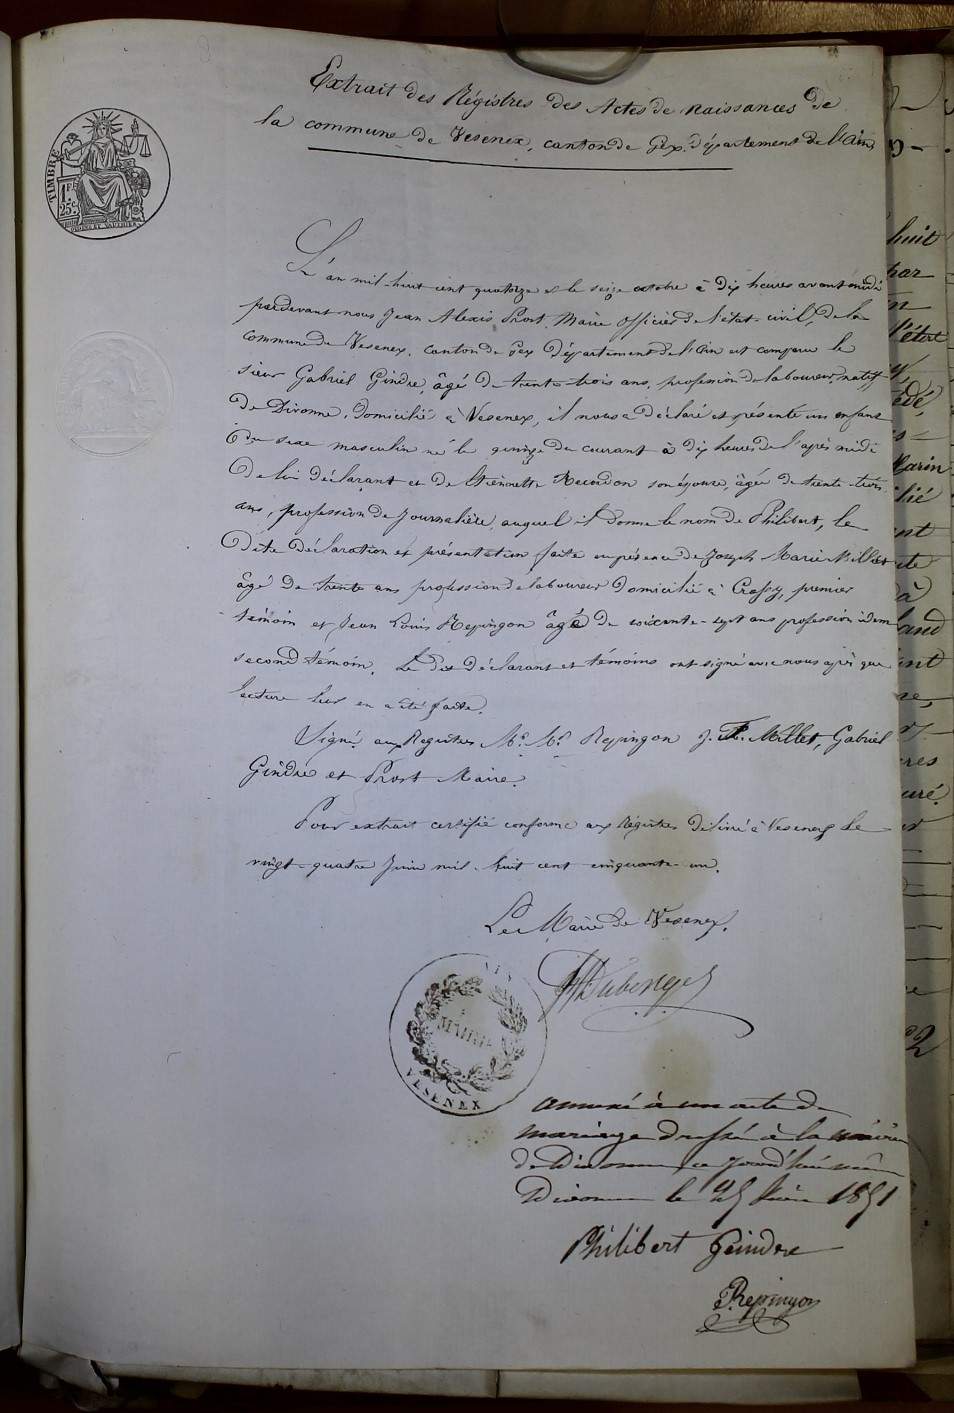 Extrait des Régistres des Actes de naissances de
la commune de Vesenex, canton de Gex, département de l'Ain,
TIMBRE
1 FR
25 c.
L'an mil-huit cent quatorze et le seize octobre à dix heures avant midi
pardevant nous Jean Alexis Prost Maire officier de l'état-civil, de la
commune de Vesenex, canton de Gex Département de l'Ain est comparu le
sieur Gabriel Gindre, âgé de trente-trois ans, profession de laboureur, natif
de Divonne, domicilié à Vesenex, il nous a déclaré et présenté un enfant
du sexe masculin né le quinze du courant à dix heures de l'après midi
de lui déclarant et de Etiennette Recordon son épouse, âgée de trente-trois
ans, profession de journalière, auquel il donne le nom de Philibert, le
dite déclaration et présentation faite en présence de Joseph Marie Millet
âgé de trente ans profession de laboureur domicilié à Crassy, premier
témoin et Jean Louis Repingon âgé de soixante-sept ans profession idem
second témoin. Le dit déclarant et témoins ont signé avec nous après que
lecture leur en a été faite.
Signé aux Registres Repingon J. Millet, Gabriel
Gindre et Prost Maire.
Pour extrait certifié conforme aux Régistres délivré à Vesenex le
vingt-quatre Juin mil-huit cent cinquante-un.
Le Maire de Vesenex.
MAIRIE
VESENEX
annexé à un acte de
mariage dressé à la mairie
de Divonne ce jourd'hui
Divonne le 25 Juin 1851
Philibert Geindre
Repingon